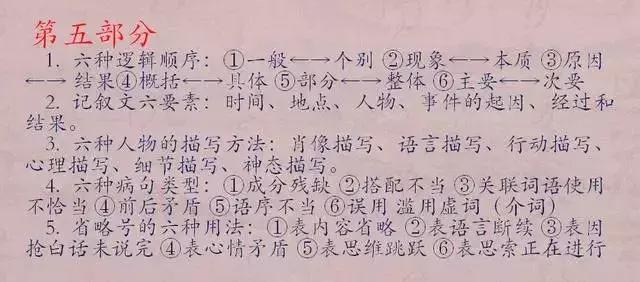 第五部分
1. 六种逻辑顺序：①一般←→个别 ②现象←→本质 ③原因
←→ 结果④概括←→具体 ⑤部分←→整体 ⑥主要←→次要
2. 记叙文六要素：时间、地点、人物、事件的起因、经过和
结果。
3. 六种人物的描写方法：肖像描写、语言描写、行动描写、
心理描写、细节描写、神态描写。
4. 六种病句类型：①成分残缺 ②搭配不当 ③关联词语使用
不恰当 ④前后矛盾 ⑤语序不当 ⑥误用 滥用虚词（介词）
5. 省略号的六种用法：①表内容省略 ②表语言断续 ③表因
抢白话未说完 ④表心情矛盾 ⑤表思维跳跃 ⑥表思索正在进行